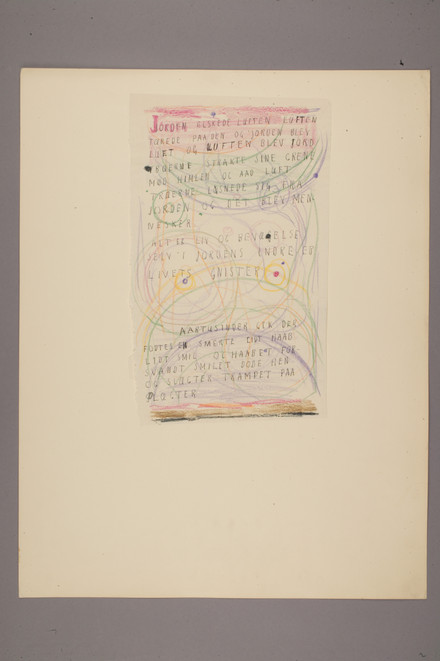 JORDEN ELSKEDE LUFTEN LUFTEN
TÆREDE PAA DEN OG JORDEN BLEV
LUFT OG LUFTEN BLEV JORD
TRÆERNE STRAKTE SINE GRENE
MOD HIMLEN OG AAD LUFT
TRÆERNE LØSNEDE SIG FRA
JORDEN OG DET BLEV MEN
NESKER
ALT ER LIV OG BEVÆGELSE
SELV I JORDENS INDRE ER
LIVETS GNISTER
AARTUSINDER GEK DER
FØDTES EN SMERTE DIDT HAAB
LIDT SMIL OG HAABET FOR
SVANDT SMILET DØDE HEN
OG SLÆGTER TRAMPET PAA
SLÆGTER